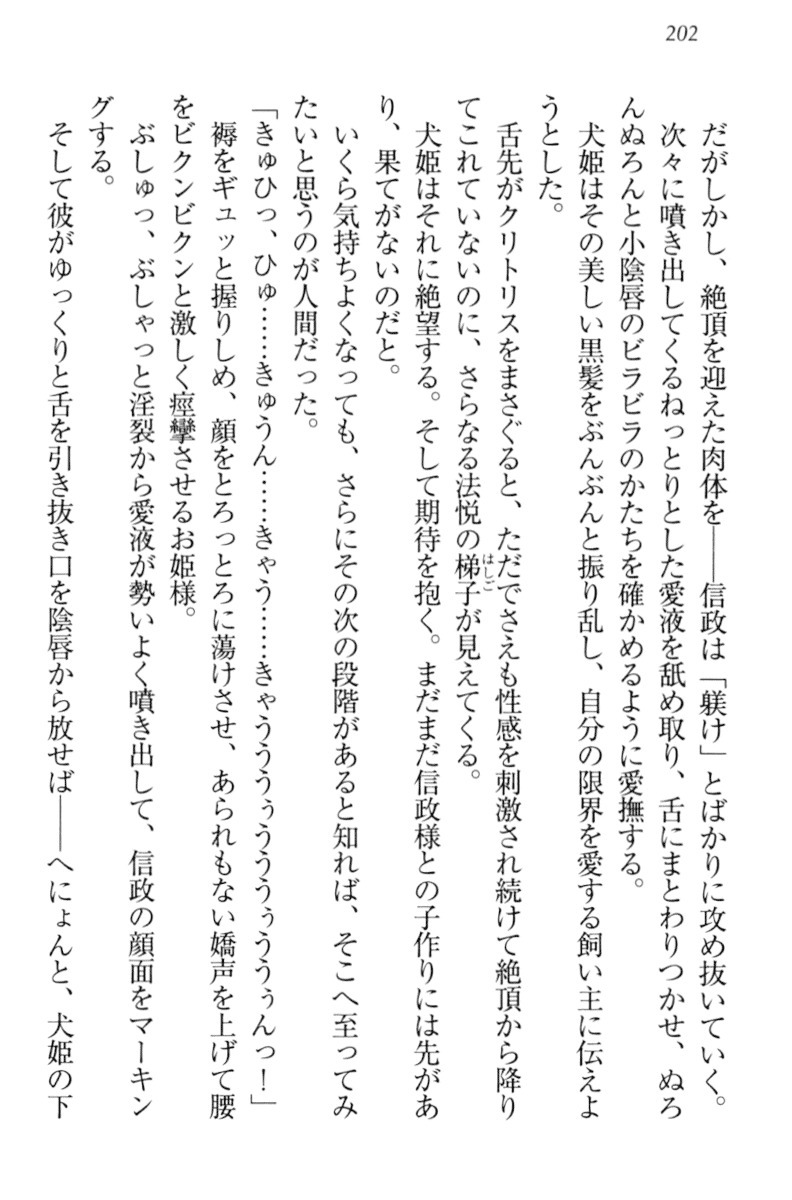 202
だがしかし、絶頂を迎えた肉体を――信政は「躾け」とばかりに攻め抜いていく。
次々に噴き出してくるねっとりとした愛液を舐め取り、舌にまとわりつかせ、ぬろ
んぬろんと小陰唇のビラビラのかたちを確かめるように愛撫する。
犬姫はその美しい黒髪をぶんぶんと振り乱し、自分の限界を愛する飼い主に伝えよ
うとした。
舌先がクリトリスをまさぐると、ただでさえも性感を刺激され続けて絶頂から降り
てこれていないのに、さらなる法悦の梯子はしごが見えてくる。
犬姫はそれに絶望する。そして期待を抱く。まだまだ信政様との子作りには先があ
り、果てがないのだと。
いくら気持ちよくなっても、さらにその次の段階があると知れば、そこへ至ってみ
たいと思うのが人間だった。
「きゅひっ、ひゅ……きゅうん……きゃう……きゃうううぅうううぅううぅんっ！」
褥をギュッと握りしめ、顔をとろっとろに蕩けさせ、あられもない嬌声を上げて腰
をビクンビクンと激しく痙攣させるお姫様。
ぶしゅっ、ぶしゃっと淫裂から愛液が勢いよく噴き出して、信政の顔面をマーキン
グする。
そして彼がゆっくりと舌を引き抜き口を陰唇から放せば――へにょんと、犬姫の下